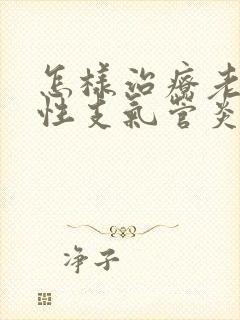 怎样治療老
性支氣管炎
净子